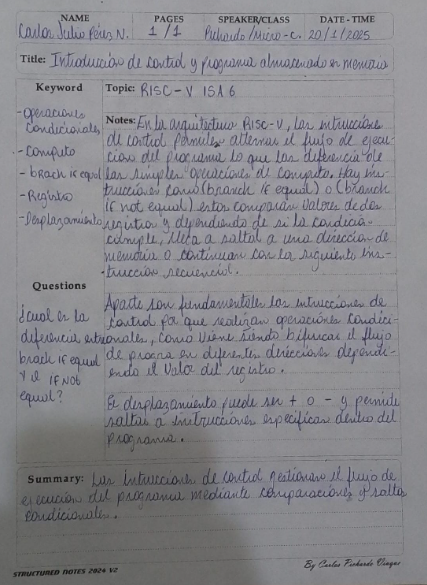 NAME PAGES SPEAKER/CLASS DATE - TIME
Carlos Julio Pérez N. 1/1 Pichardo/Micro-C. 20/1/2025
Title: Introducción de control y programa almacenado en memoria
Keyword
- Operaciones
Condicionales
- Computo
- brach if equal
- Registro
- Desplazamiento
Topic: RISC-V ISA 6
Notes: En la arquitectura RISC-V, las intrucciones
de control permiten alternar el flujo de ejecu-
cion del programa lo que las diferencia de
las simples operaciones de computo. Hay ins-
trucciones como (branch if equal) o (branch
if not equal) estas comparan valores de dos
registros y dependiendo de si la condición
cumple, lleva a saltar a una dirección de
memoria o continuan con la siguiente ins-
trucción secuencial.
Questions
¿cual es la
diferencia entre
brach IF equal
y el IF NOT
equal?
Aparte son fundamentales las intrucciones de
control por que realizan operaciones condici-
onales, como viene siendo bifurcar el flujo
de progra en diferentes direcciones dependi-
endo el valor del registro.
El desplazamiento puede ser + o - y permite
saltar a instrucciones especificas dentro del
programa.
Summary: Las intrucciones de control gestionan el flujo de
ejecucion del programa mediante comparaciones y saltos
condicionales.
STRUCTURED NOTES 2024 V2
By Carlos Pichardo Vinque